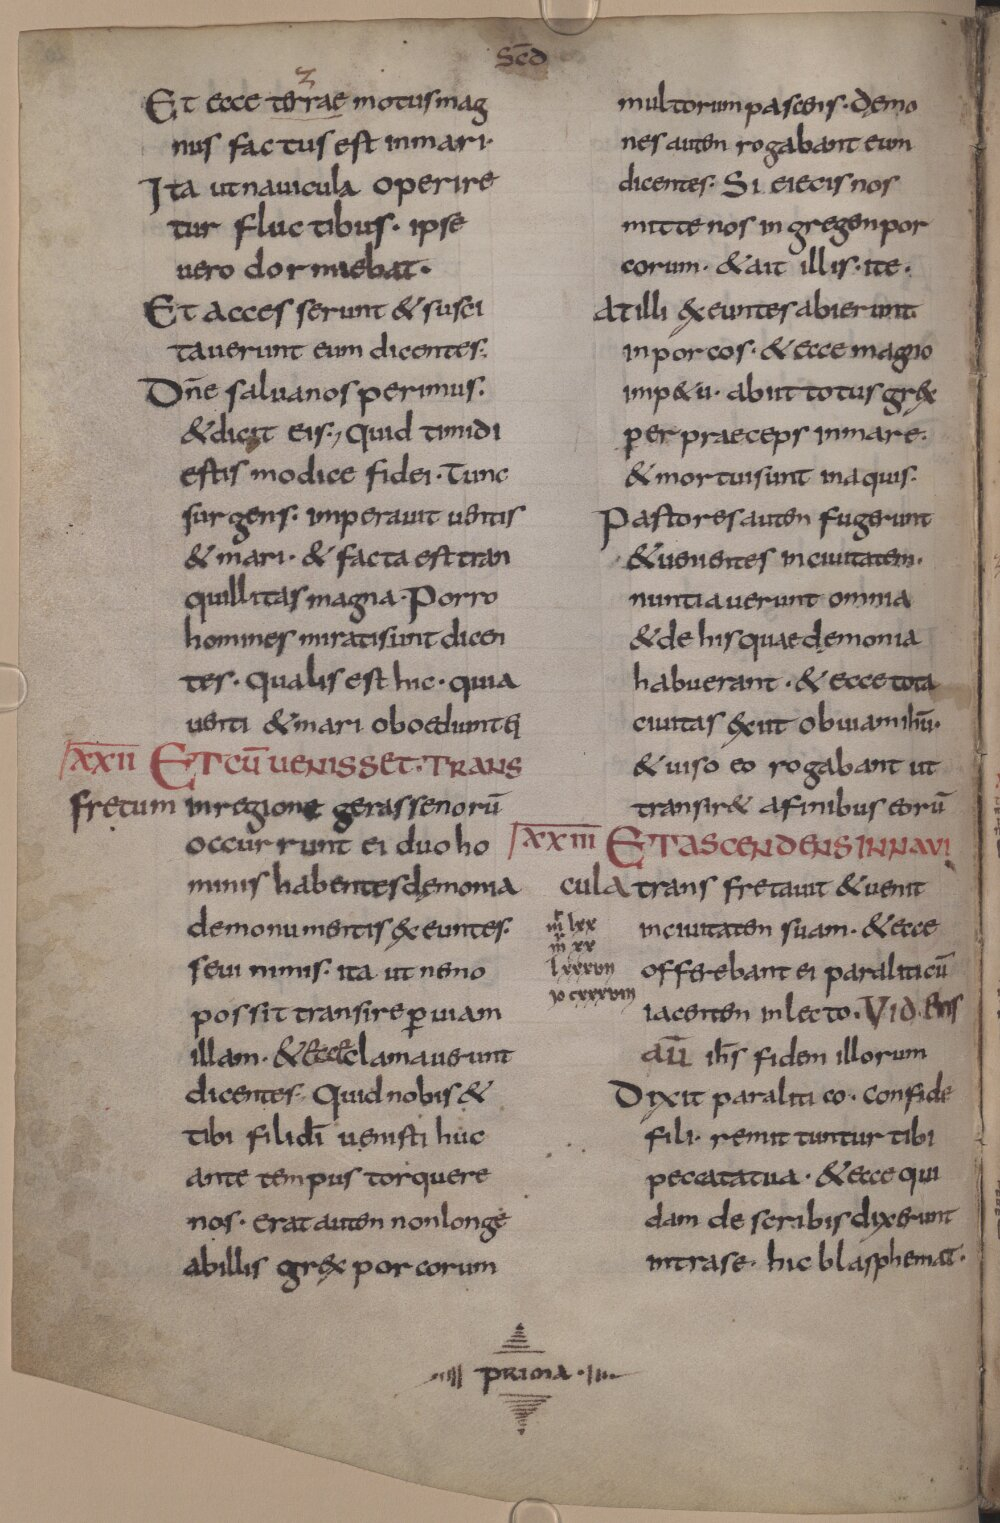 Scd
Et ecce terrae motus mag
nus factus est in mari·
Ita ut nauicula operire
tur fluctibus· ipse
uero dormiebat·
Et accesserunt & susci
tauerunt eum dicentes·
Dn̄e salua nos perimus·
& dicit eis·, Quid timidi
estis modice fidei· Tunc
surgens· imperauit uentis
& mari· & facta est tran
quillitas magna· Porro
homines mirati sunt dicen
tes· Qualis est hic· quia
uenti & mari oboediunt ei
XXII Et cū uenisset· trans
fretum in regione gerassenorū
occurrunt ei duo ho
minis habentes demonia
de monumentis exeuntes·
seui nimis· ita ut nemo
possit transire ꝑ uiam
illam· & ecce clamauerunt
dicentes· Quid nobis &
tibi fili dī uenisti huc
ante tempus torquere
nos· erat autem non longe
ab illis grex porcorum
multorum pascens· demo
nes autem rogabant eum
dicentes· Si eiecis nos
mitte nos in gregem por
corum· & ait illis· ite·
At illi exeuntes abierunt
in porcos· & ecce magno
imp&u· abiit totus grex
per praeceps in mare·
& mortui sunt in aquis·
Pastores autem fugerunt
& uenientes in ciuitatem·
nuntiauerunt omnia
& de his quae demonia
habuerant· & ecce tota
ciuitas exiit obuiam ihū·
& uiso eo rogabant ut
transir& a finibus eorū
XXIII Et ascendens in naui
cula trans fretauit & uenit
in ciuitatem suam· & ecce
m̄ lxx
m̄ xx
l xxxvii
io cxxxviii
offerebant ei paraliticū
iacentem in lecto· Videns
aū ihs̄ fidem illorum
Dixit paralitico· confide
fili· remittuntur tibi
peccata tua· & ecce qui
dam de scribis dixerunt
intra se· hic blasphemat·
PRIMA·